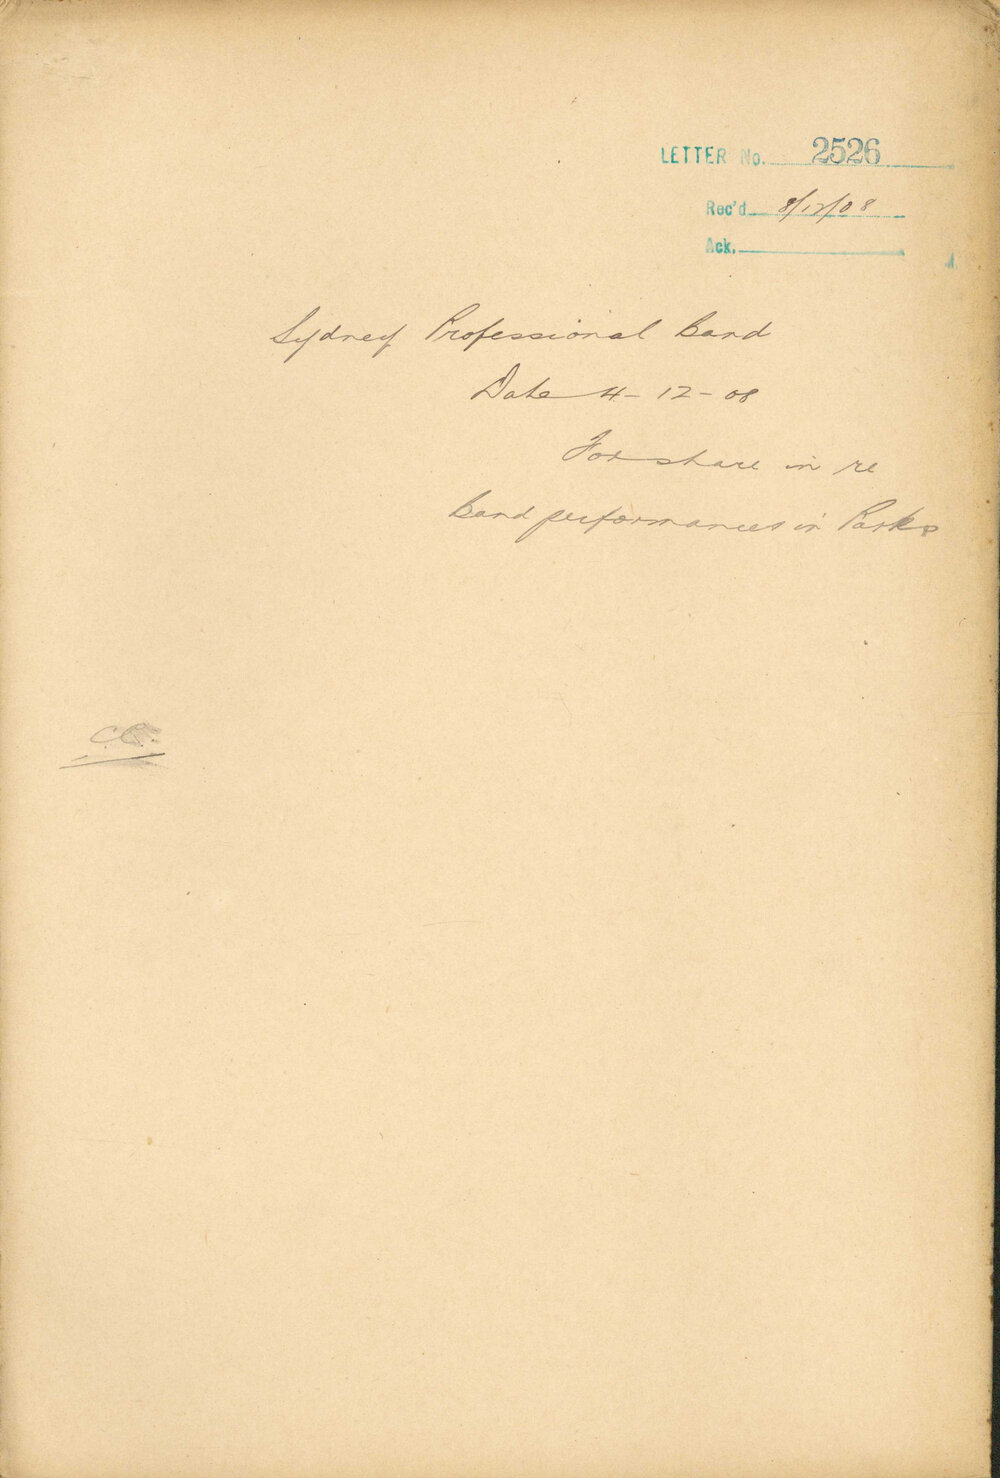 LETTER No. 2526
Rec'd 8/12/08
Ack.
Sydney Professional Band
Date 4-12-08
For share in re
Band performances in Parks